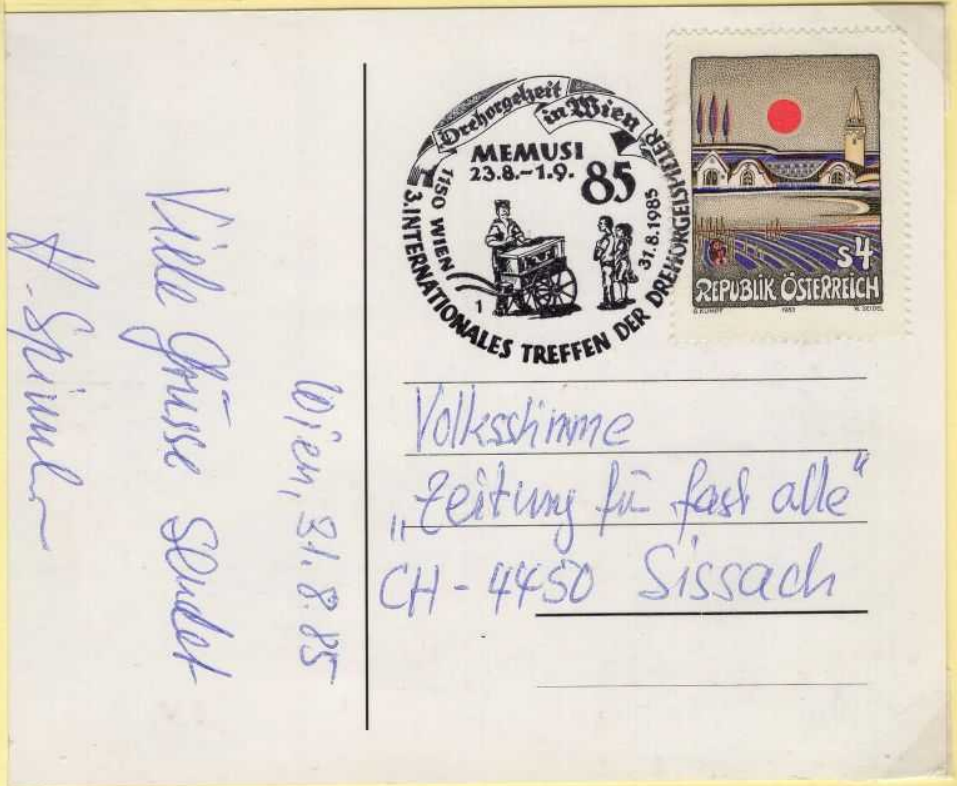 Wien, 31.8.85
Viele Grüsse sendet
H. Spinnler
Drehorgelzeit in Wien
MEMUSI
23.8.-1.9. 85
1150 WIEN
31.8.1985
1
3. INTERNATIONALES TREFFEN DER DREHORGELSPIELER
s4
REPUBLIK ÖSTERREICH
1983
Volksstimme
„Zeitung für fast alle“
CH - 4450 Sissach